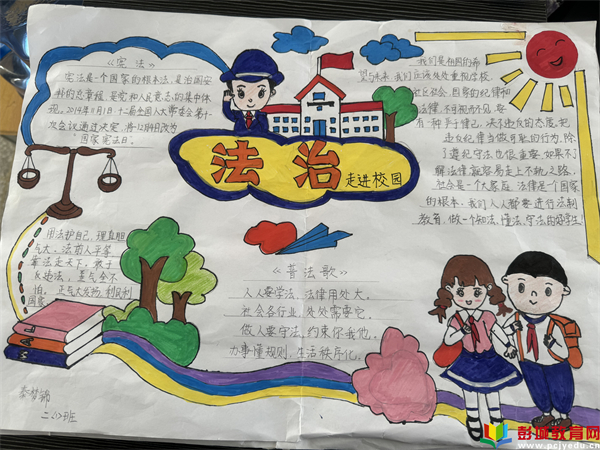 《宪法》
宪法是一个国家的根本法，是治国安
邦的总章程，是党和人民意志的集中体
现。2014年11月1日，十二届全国人大常委会第十
一次会议通过决定，将12月4日设为
国家宪法日。
法治
走进校园
我们是祖国的希
望与未来，我们应该处处重视学校
社区社会、国家的纪律和
法律，不可视而不见，要
有一种严于律己，决不违纪的态度，把
违反纪律当做可耻的行为，除
了遵纪守法也很重要，如果不
了解法律就容易走上不轨之路，
社会是一个大家庭，法律是个国家
的根本，我们人人都要进行法制
教育，做一个知法、懂法、守法的好学生！
用法护自己，理直胆
气大。法前人平等，
靠法走天下。敢于
反违法，歪气全不
怕。正气大发扬，利民利
国家。
《普法歌》
人人要学法，法律用处大。
社会各行业，处处需要它。
做人要守法，约束你我他。
办事懂规则，生活秩序化。
二(2)班
彭城教育网
www.pcjyedu.cn